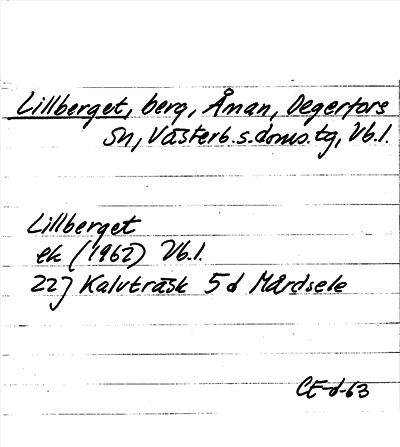 Lillberget, berg, Åman, Degerfors
sn, Västerb.s.doms.tg, Vb.l.
Lillberget
ek (1962) Vb.l.
22J Kalvträsk 5d Mårdsele
CE-d-63